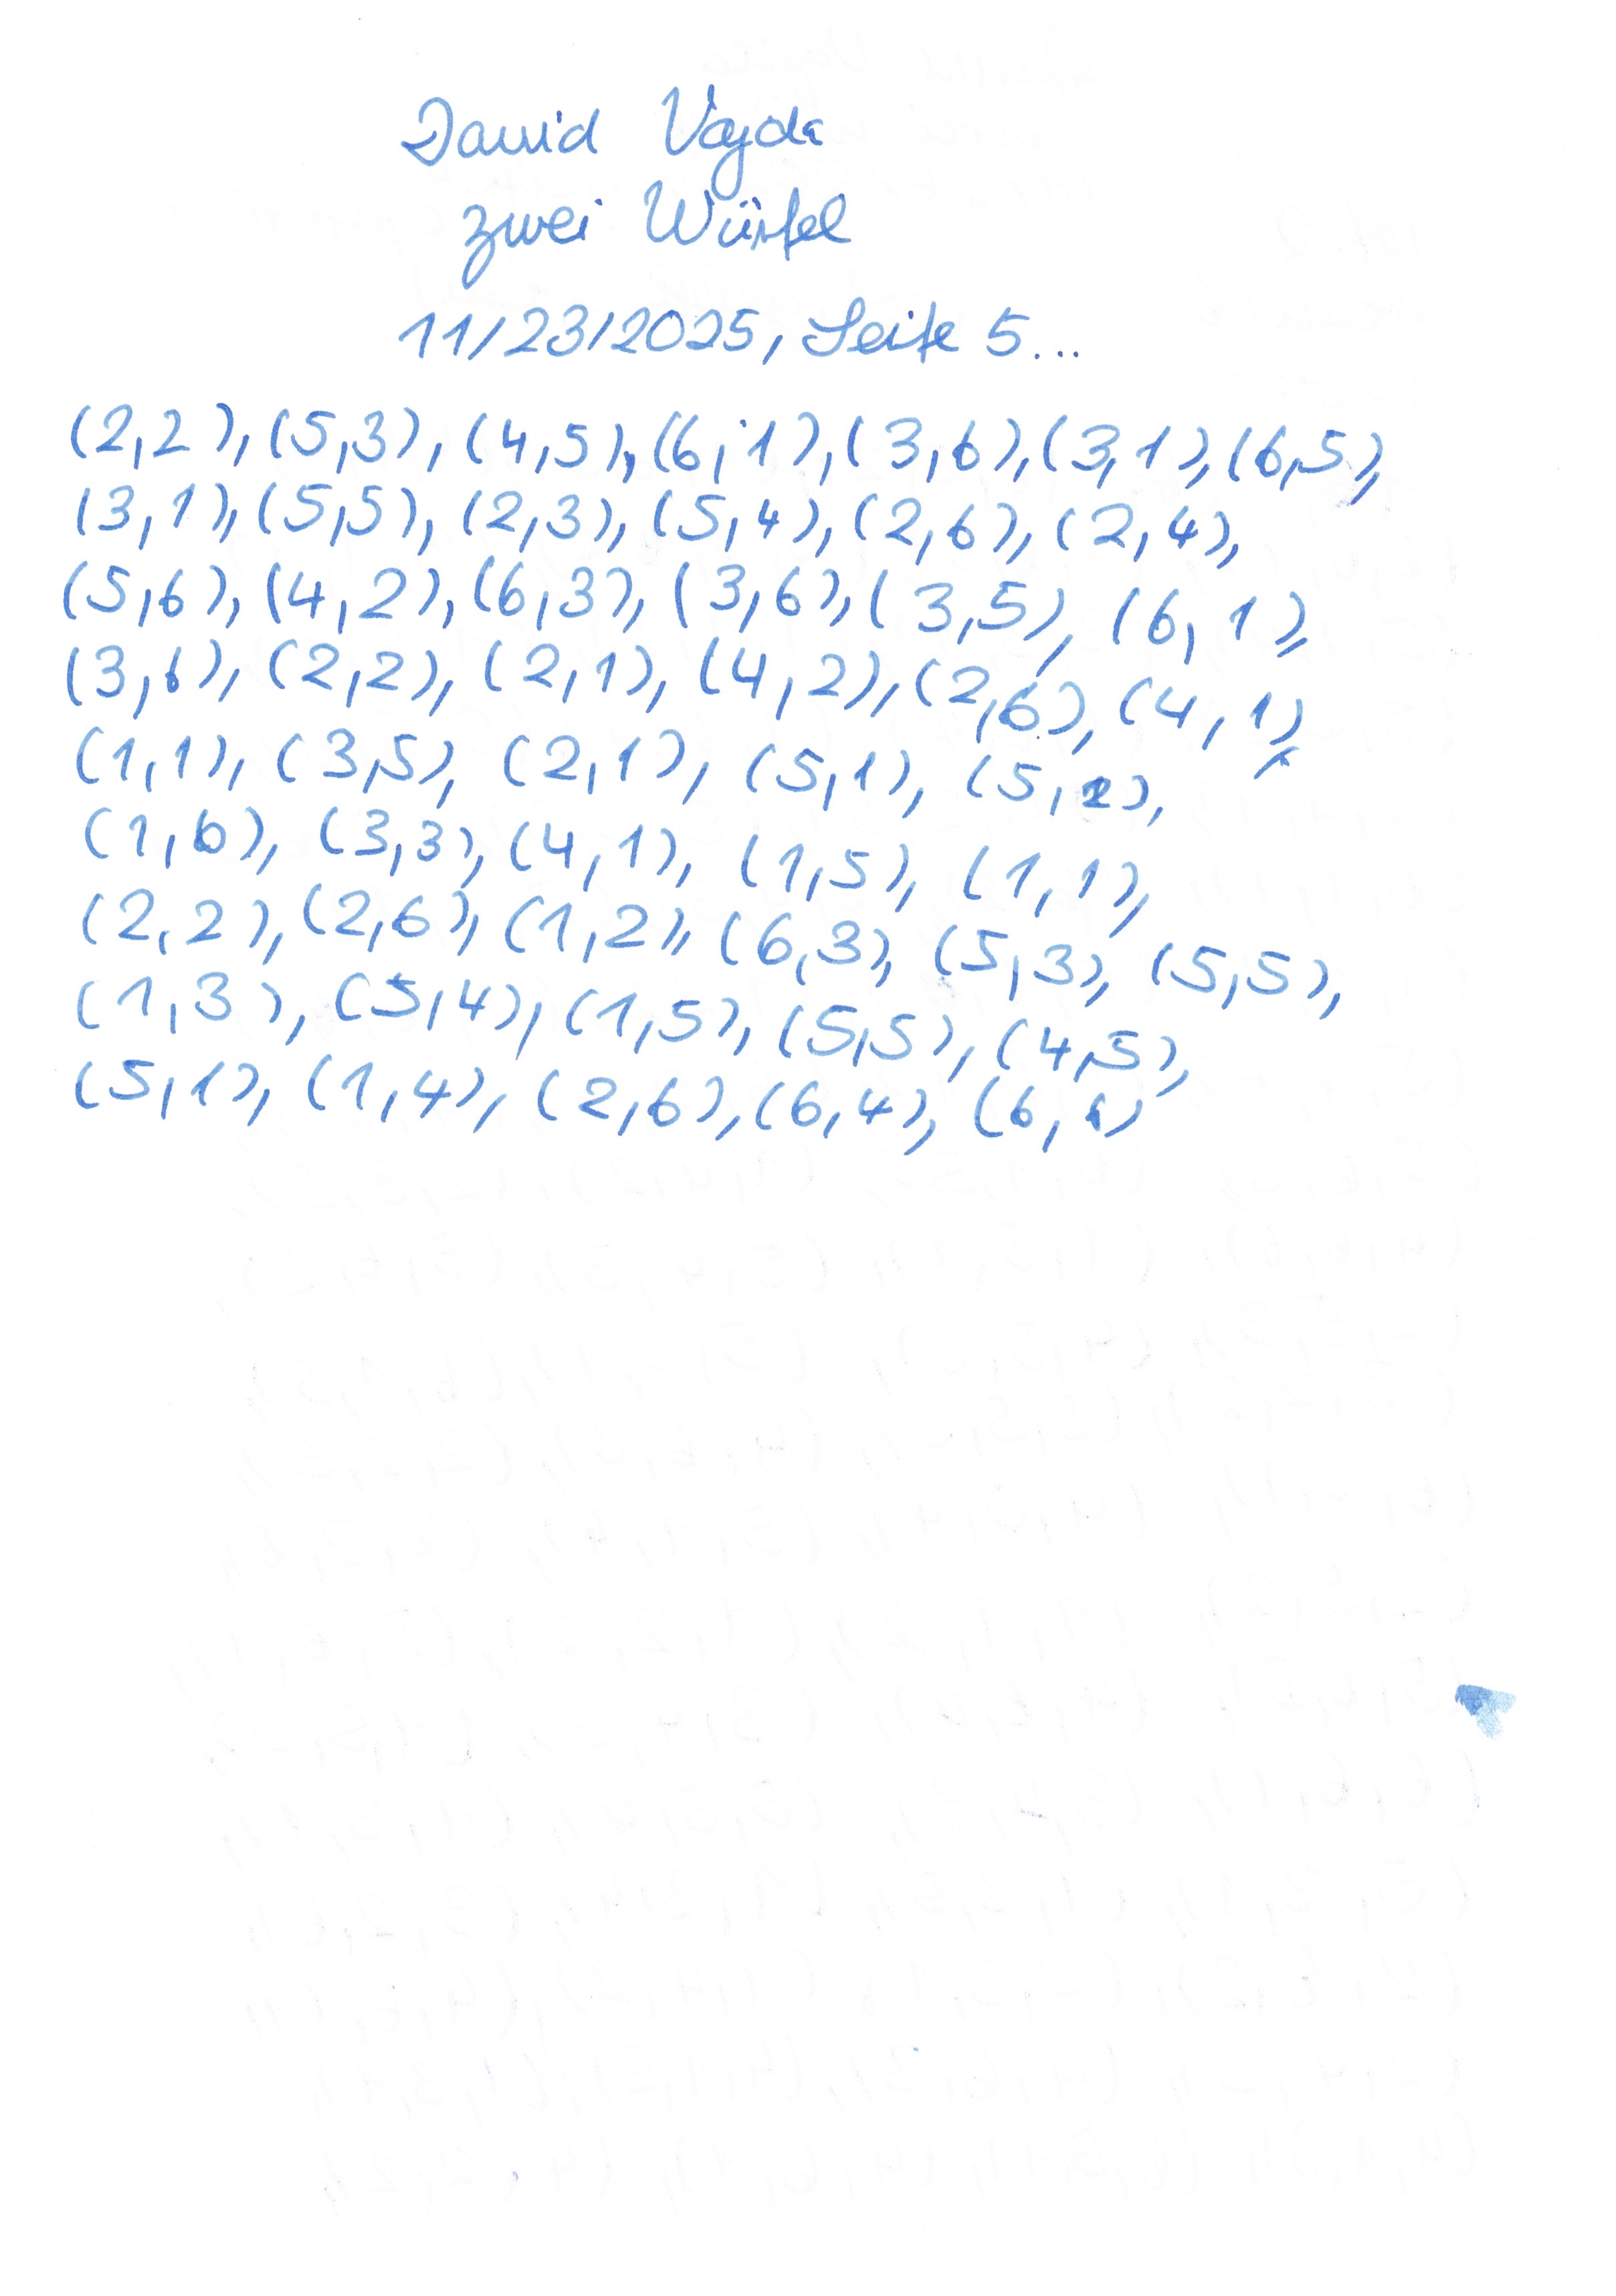 David Vajda
zwei Würfel
11/23/2025, Seite 5...
(2,2), (5,3), (4,5), (6,1), (3,6), (3,1), (6,5),
(3,1), (5,5), (2,3), (5,4), (2,6), (2,4),
(5,6), (4,2), (6,3), (3,6), (3,5), (6,1),
(3,6), (2,2), (2,1), (4,2), (2,6), (4,1),
(1,1), (3,5), (2,1), (5,1), (5,2),
(1,6), (3,3), (4,1), (1,5), (1,1),
(2,2), (2,6), (1,2), (6,3), (5,3), (5,5),
(1,3), (5,4), (1,5), (5,5), (4,5),
(5,1), (1,4), (2,6), (6,4), (6,